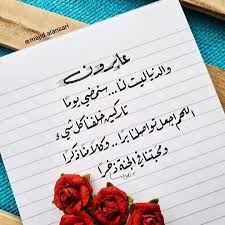 @majid.alansari
عابرون
والدنيا ليست لنا... ستمضي يومًا
تاركين خلفنا كل شيء
اللهم اجعل تواصلنا برًا.. وكلامنا ذكرًا
ومحبتنا في الجنة ذخرًا